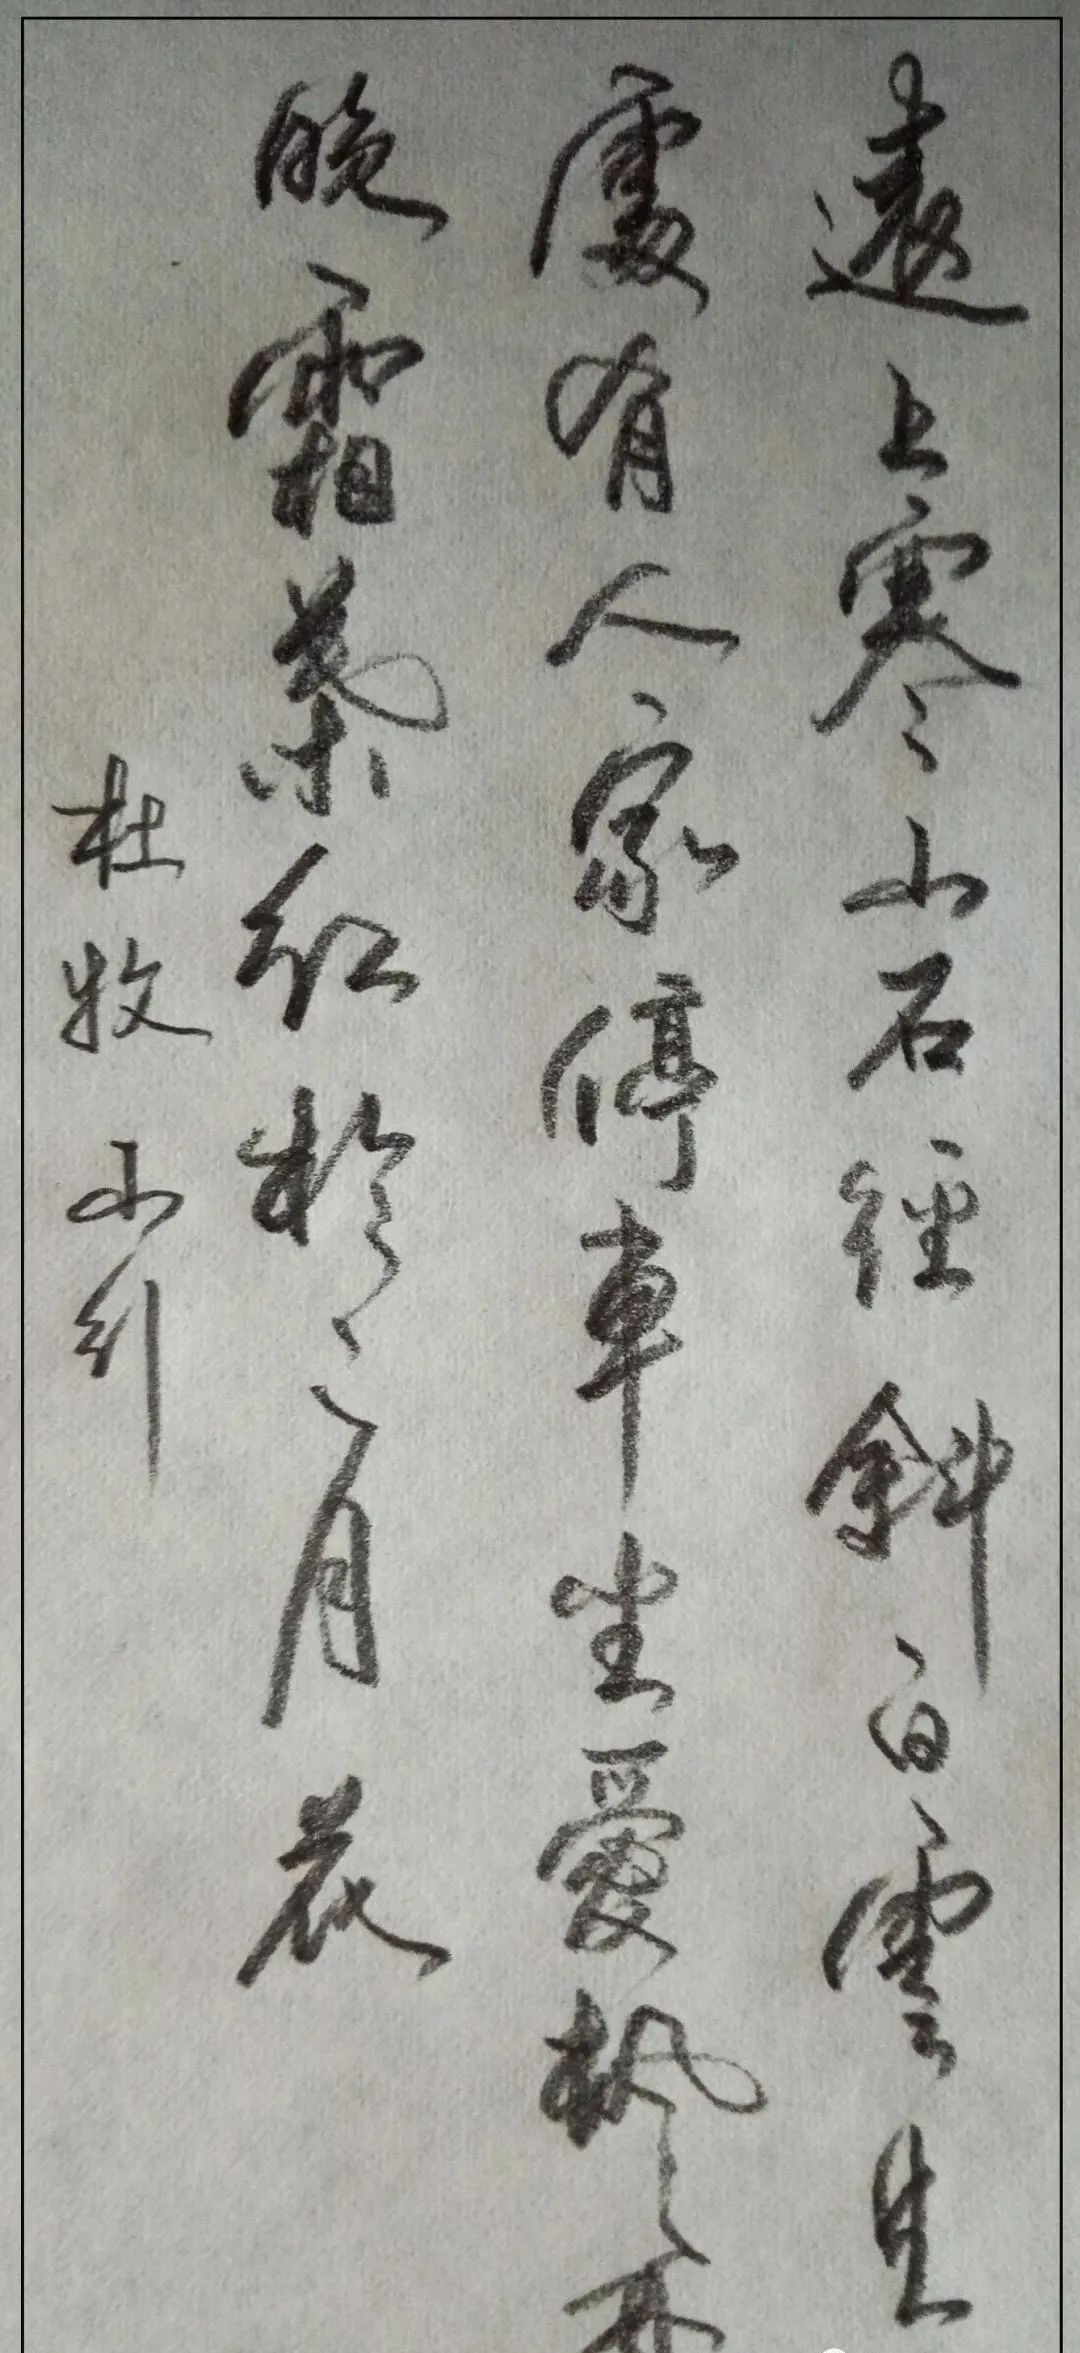 遠上寒山石徑斜白雲生
處有人家停車坐愛楓林
晚霜葉紅於二月花
杜牧山行